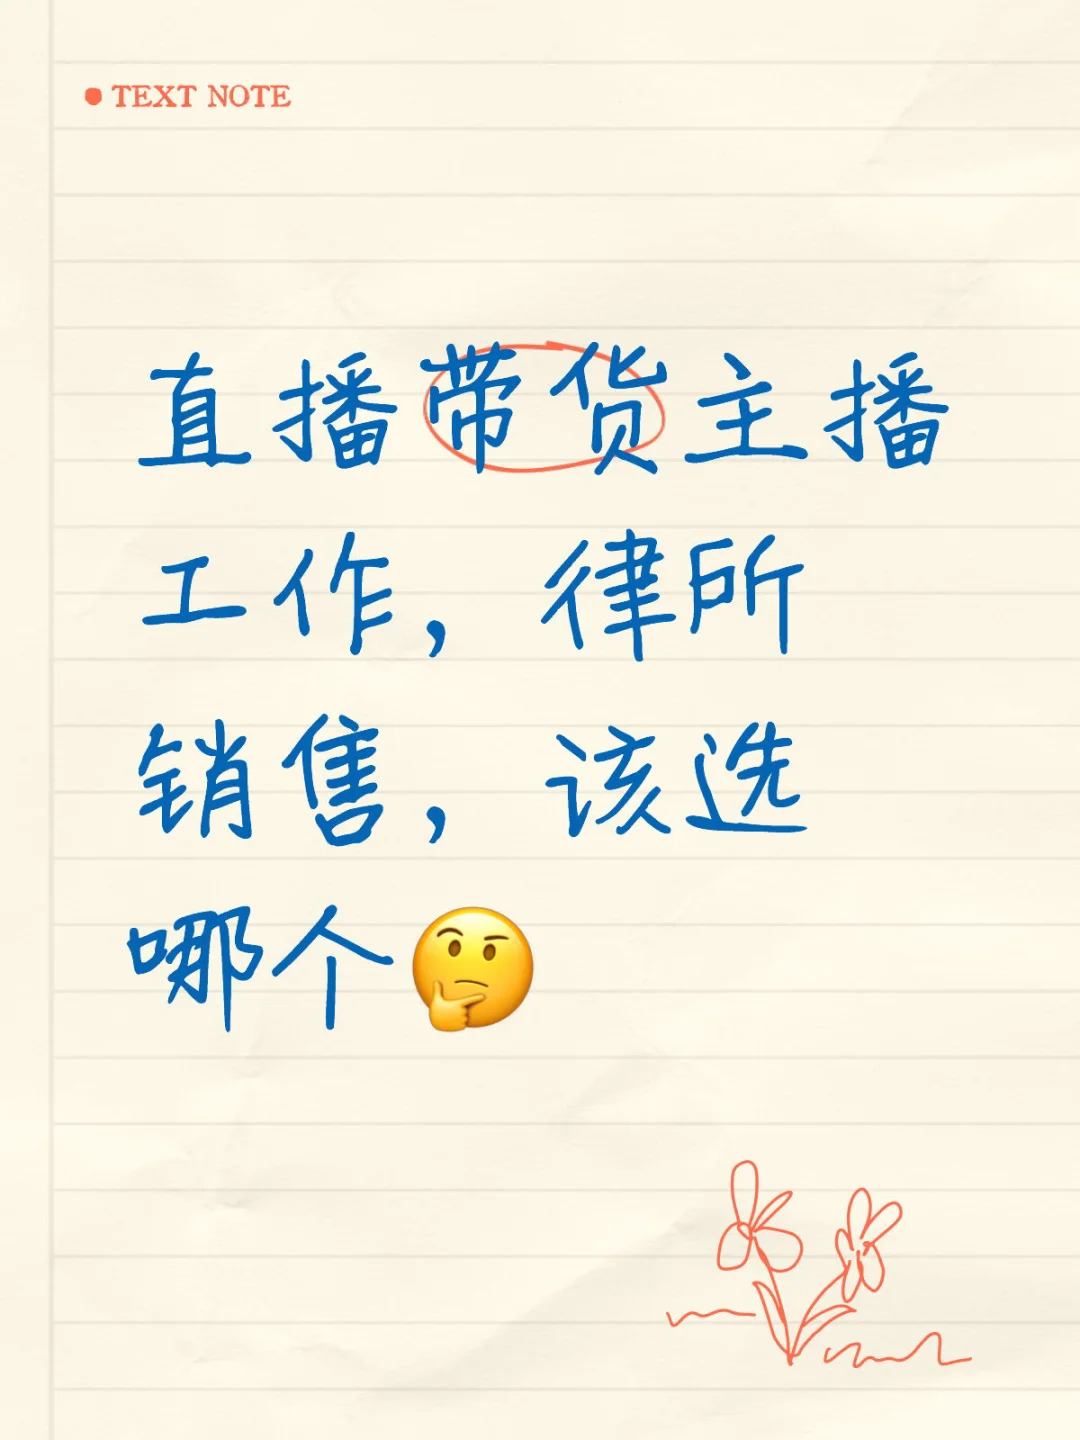 TEXT NOTE
直播带货主播
工作，律所
销售，该选
哪个🤔